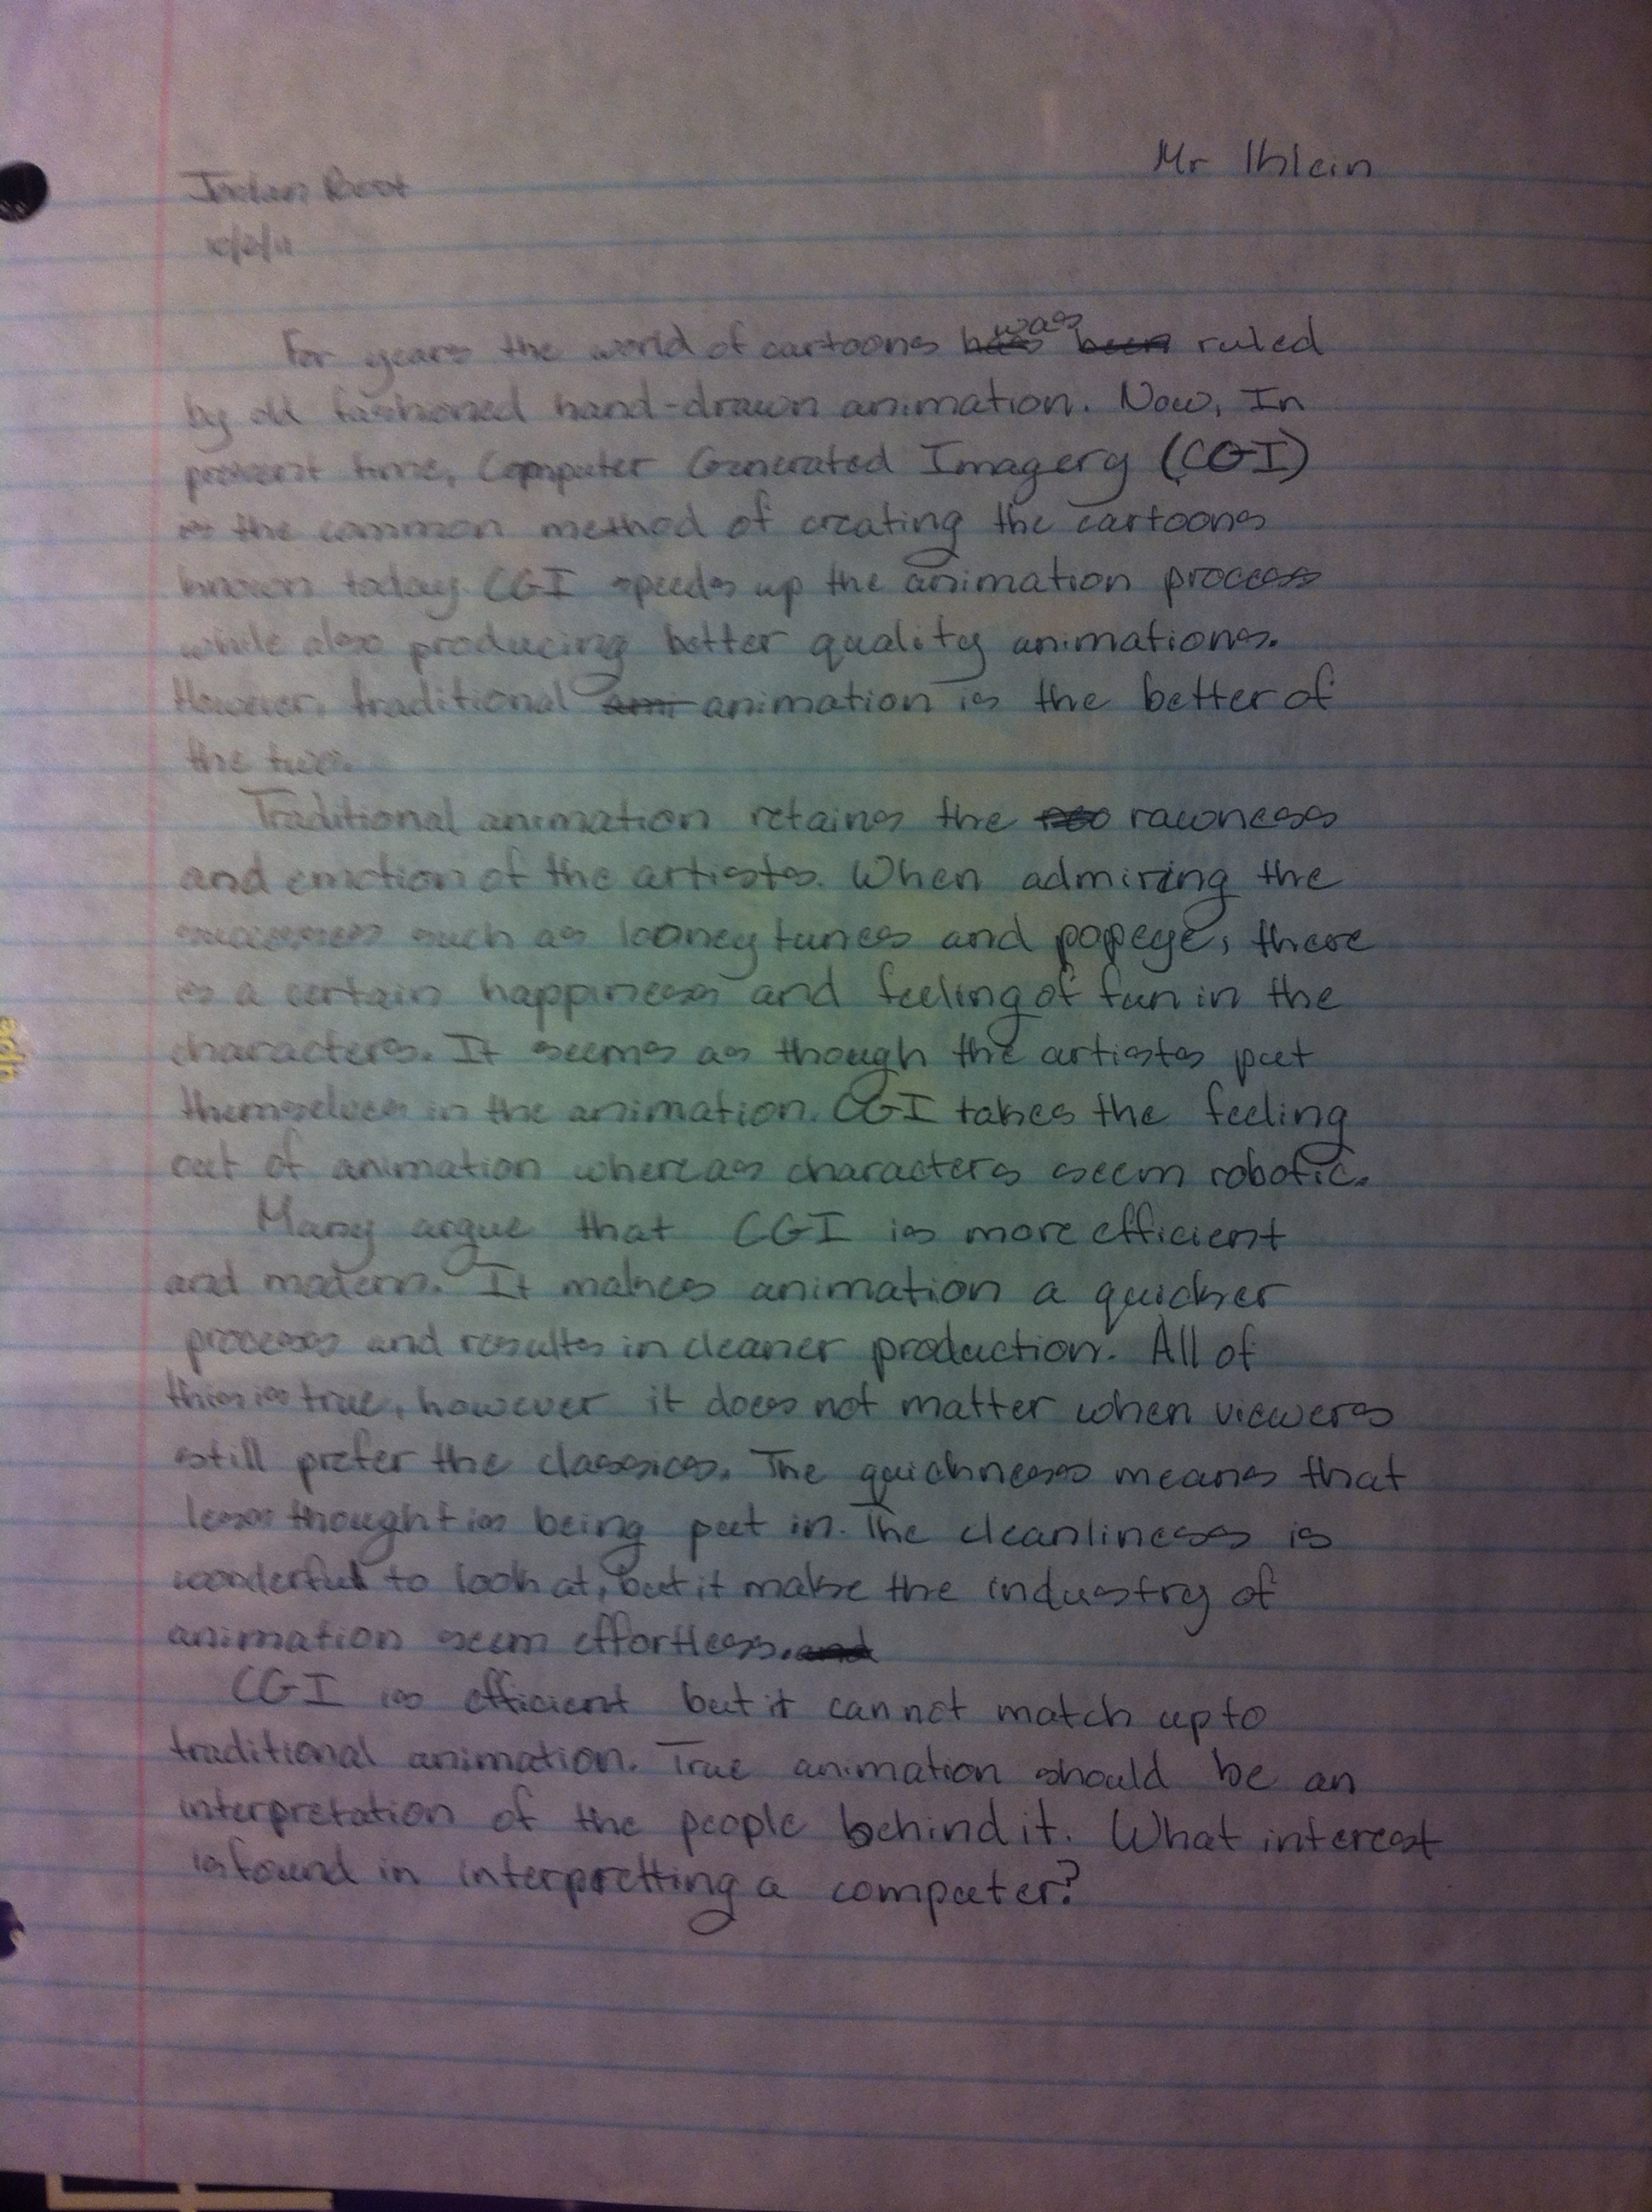 Mr Ihlein
Jordan Root
For years the world of cartoons has was been ruled
by old fashioned hand-drawn animation. Now, In
present time, Computer Generated Imagery (CGI)
is the common method of creating the cartoons
known today. CGI speeds up the animation process
while also producing better quality animations.
However, traditional ami animation is the better of
the two.
Traditional animation retains the rawness
and emotion of the artists. When admiring the
successes such as looney tunes and popeye, there
is a certain happiness and feeling of fun in the
characters. It seems as though the artists put
themselves in the animation. CGI takes the feeling
out of animation whereas characters seem robotic.
Many argue that CGI is more efficient
and modern. It makes animation a quicker
process and results in cleaner production. All of
this is true, however it does not matter when viewers
still prefer the classics. The quickness means that
less thought is being put in. The cleanliness is
wonderful to look at, but it make the industry of
animation seem effortless. and
CGI is efficient but it cannot match up to
traditional animation. True animation should be an
interpretation of the people behind it. What interest
is found in interpretting a computer?